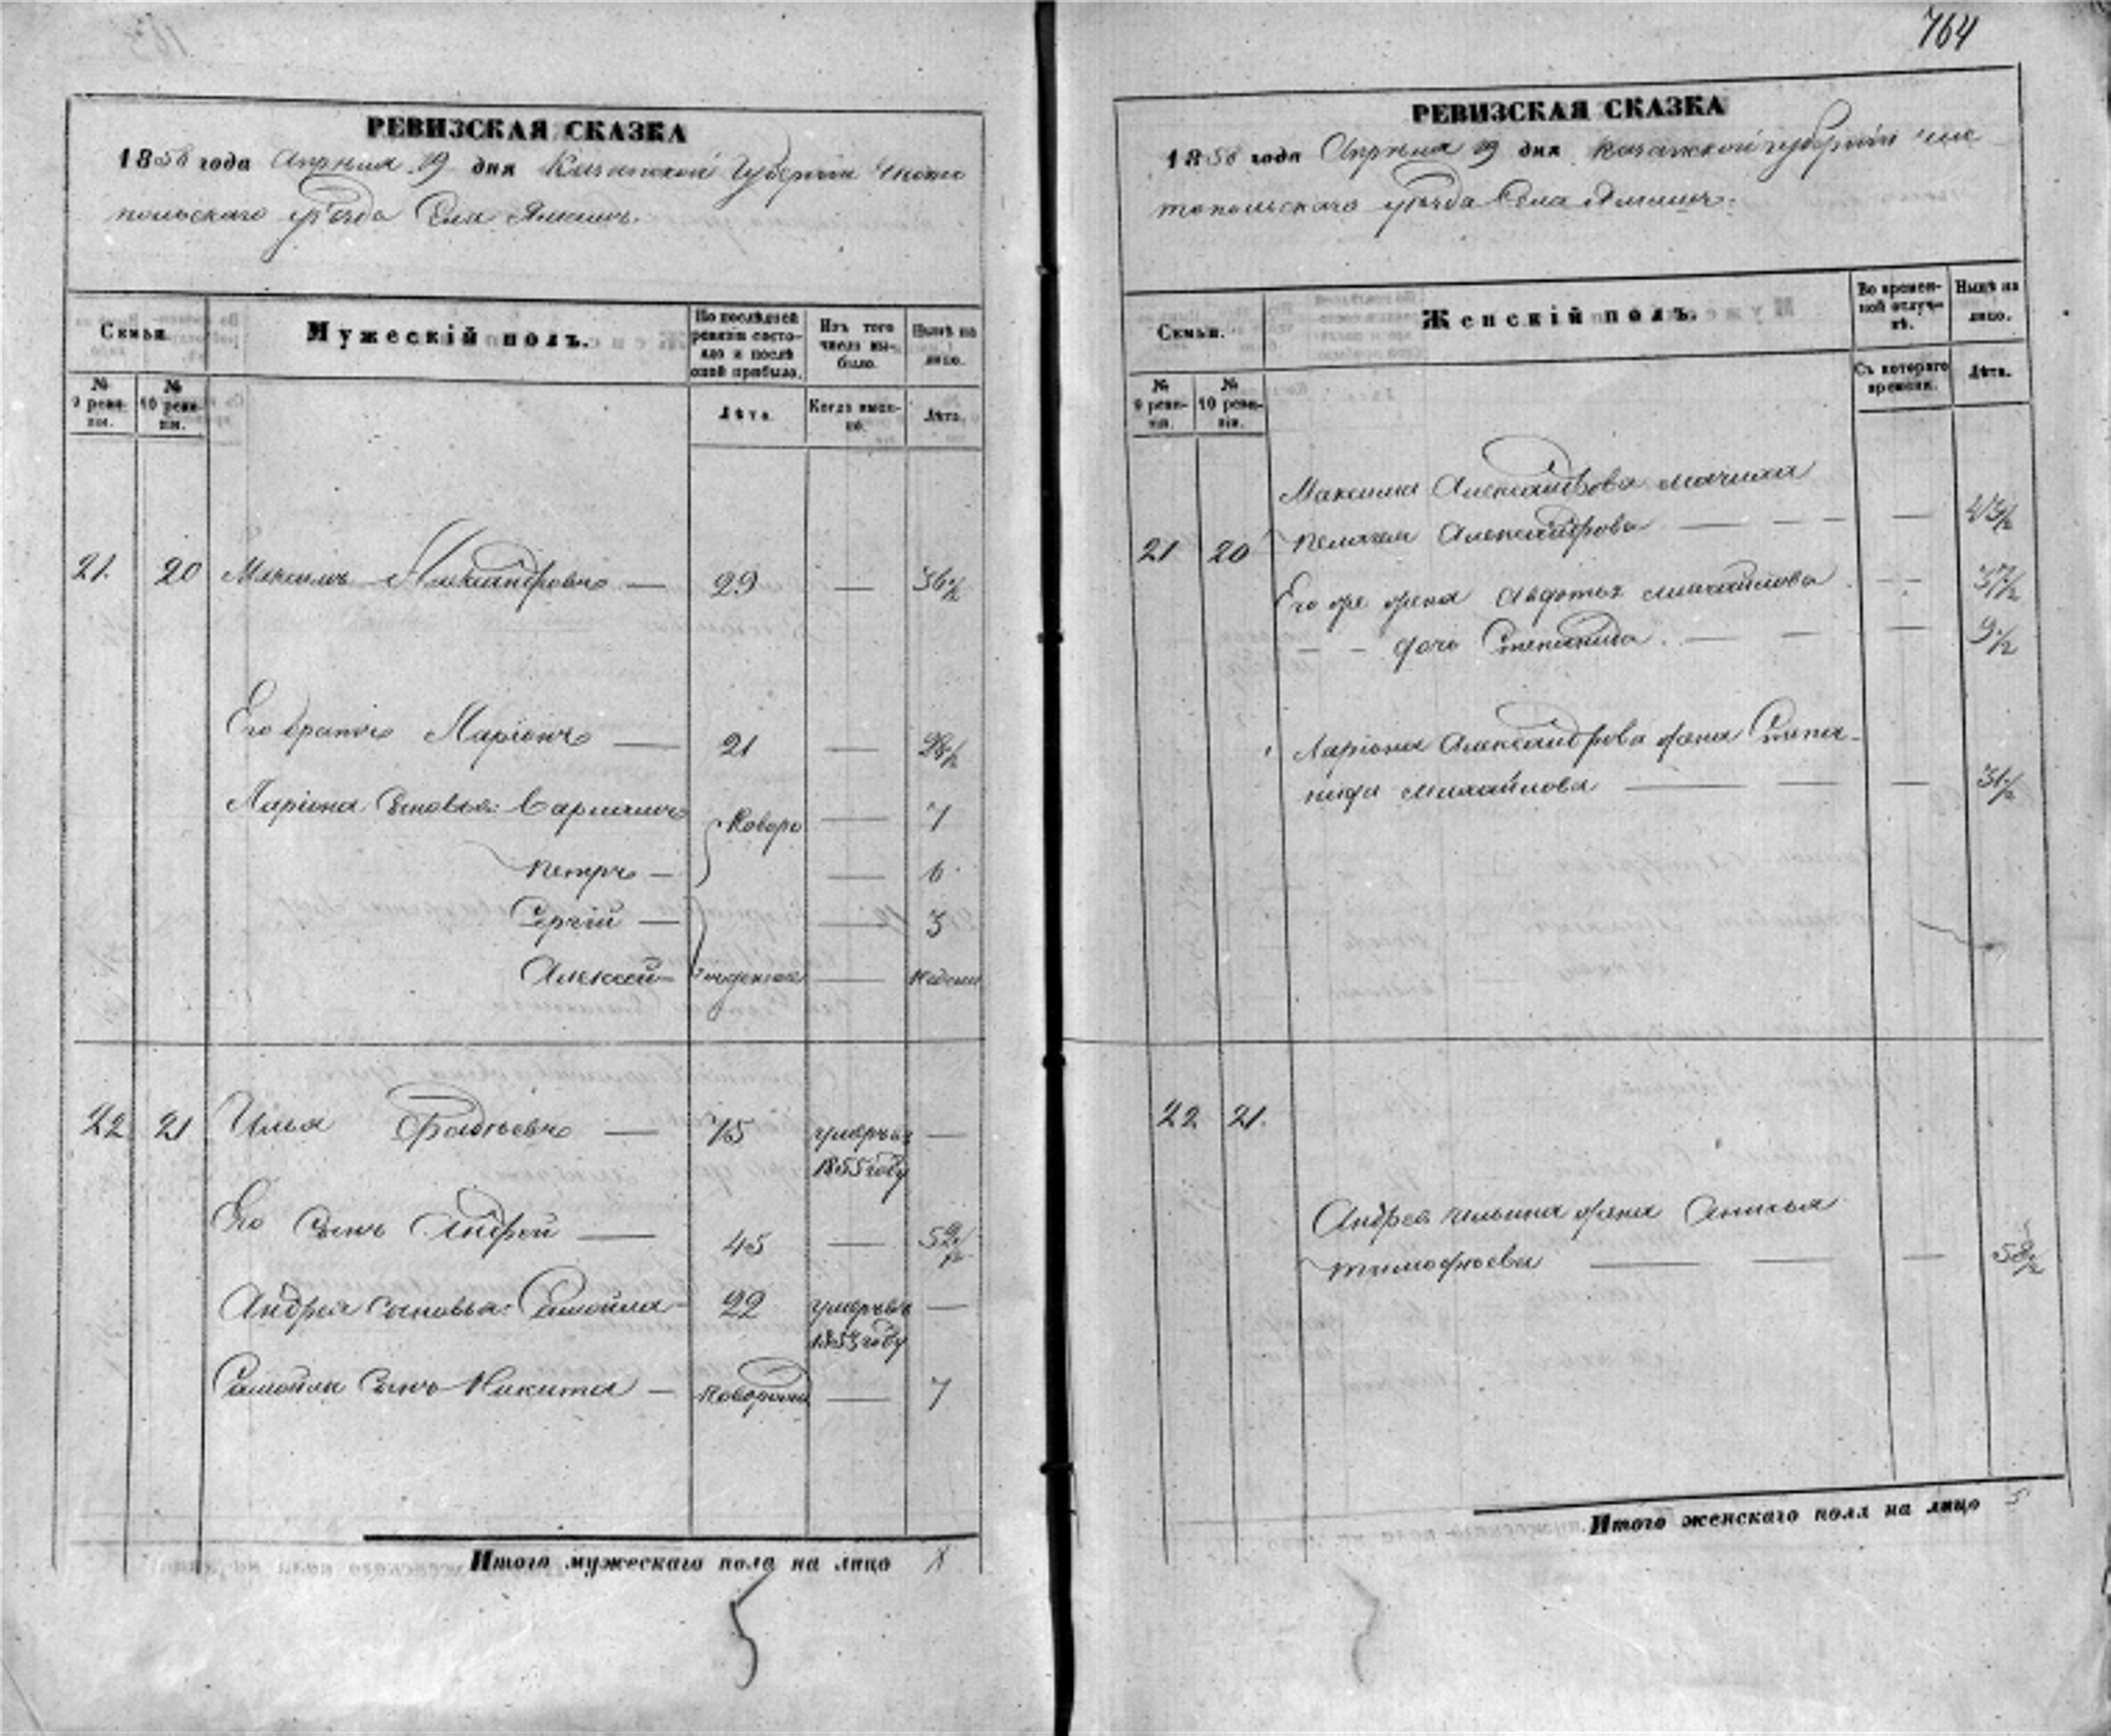 764
РЕВИЗСКАЯ СКАЗКА
1858 года Апреля 19 дня Казанской Губернии Чисто
польскаго уѣзда Села
Семьи.
Мужескій полъ.
По послѣдней ревизіи состояло и послѣ оной прибыло.
Изъ того числа выбыло.
Нынѣ на лицо.
№ 9 ревизіи.
№ 10 ревизіи.
Лѣта.
Когда именно.
Лѣта.
21. 20 Максимъ Александровъ — 29 — 36½
Его братъ Ларіонъ — 21 — 28½
Ларіона Сыновья: — 7
Новоро
Петръ — — 6
Сергій — — 3
Алексей — — Недели
22 21 Илья Фадѣевъ — 75 умеръ въ —
1855 году
Его Сынъ Андрей — 45 — 52½
Андрея Сыновья: Самойла — 22 умеръ въ —
1853 году
Самойлы Сынъ Никита — Новорож — 7
Итого мужескаго пола на лицо 8
РЕВИЗСКАЯ СКАЗКА
1858 года Апреля 19 дня Казанской губерніи Чис
топольскаго уѣзда Села
Семьи.
Женскій полъ.
Во временной отлучкѣ.
Нынѣ на лицо.
№ 9 ревизіи.
№ 10 ревизіи.
Съ котораго времени.
Лѣта.
Максима Александрова мачиха
21 20 Пелагея Александрова — — — — 43½
Его же жена Авдотья Михайлова - - 37½
- - дочь Степанида. — — — 9½
Ларіона Александрова жена Степа-
нида Михайлова — — — 31½
22 21.
Андрея Ильина жена Анисья
Тимофѣева — — — 58½
Итого женскаго пола на лицо 5